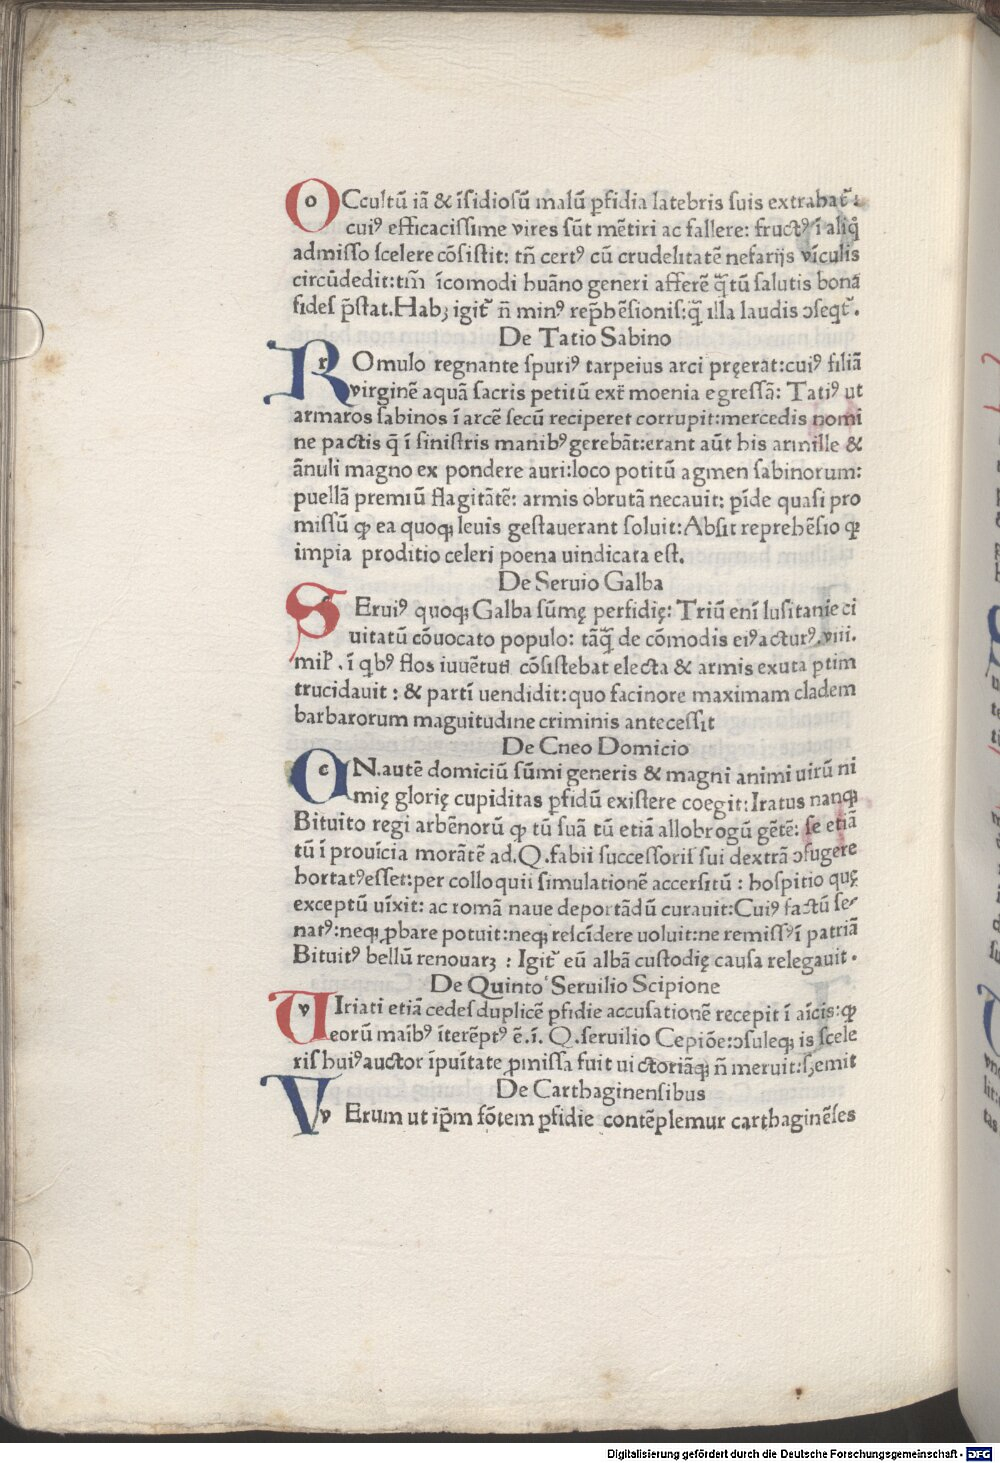 OCcultū iā & īsidiosū malū ꝑfidia latebris suis extrahat᷑:
cuiꝰ efficacissime vires sūt mētiri ac fallere: fructꝰ ī aliq̄
admisso scelere cōsistit: tn̄ certꝰ cū crudelitatē nefarijs vīculis
circūdedit: tm̄ īcomodi huāno generi afferē q̄tū salutis bona
fides p̄stat. Habꝫ igit᷑ n̄ minꝰ rep̄hēsionis: q̄ illa laudis ɔseqt᷑.
De Tatio Sabino
ROmulo regnante spuriꝰ tarpeius arci pręerat: cuiꝰ filiā
virginē aquā sacris petitū extr̄ moenia egressā: Tatiꝰ ut
armaros sabinos ī arcē secū reciperet corrupit: mercedis nomi
ne pactis q̄ ī sinistris manibꝰ gerebāt: erant aūt his armille &
ānuli magno ex pondere auri: loco potitū agmen sabinorum:
puellā premiū flagitātē: armis obrutā necauit: p̄ide quasi pro
missū ꝙ ea quoqꝫ leuis gestauerant soluit: Absit reprehēsio ꝙ
impia proditio celeri poena uindicata est.
De Seruio Galba
SEruiꝰ quoqꝫ Galba sūmę perfidię: Triū enī lusitanie ci
uitatū cōuocato populo: tāq̄ de cōmodis eiꝰ acturꝰ. viii.
mil̄. ī qbꝰ flos iuuētuti cōsistebat electa & armis exuta ꝑtim
trucidauit: & partī uendidit: quo facinore maximam cladem
barbarorum maguitudine criminis antecessit
De Cneo Domicio
CN. autē domiciū sūmi generis & magni animi uirū ni
mię glorię cupiditas ꝑfidū existere coegit: Iratus nanqꝫ
Bituito regi arbēnorū ꝙ tū suā tū etiā allobrogū gētē: se etiā
tū ī prouīcia morātē ad. Q. fabii successoris sui dextrā ɔfugere
hortatꝰ esset: per colloquii simulationē accersitū: hospitio quę
exceptū uīxit: ac romā naue deportādū curauit: Cuiꝰ factū se
natꝰ: neqꝫ ꝓbare potuit: neqꝫ rescīdere uoluit: ne remissꝰ ī patriā
Bituitꝰ bellū renouarꝫ: Igit᷑ eū albā custodię causa relegauit.
De Quinto Seruilio Scipione
VIriati etiā cedes duplicē ꝑfidie accusationē recepit ī aīcis: ꝙ
eorū maībꝰ īterēptꝰ ē. ī. Q. seruilio Cepiōe: ɔsuleqꝫ is scele
ris huiꝰ auctor īpuītate ꝓmissa fuit ui ctoriāqꝫ n̄ meruit: sꝫ emit
De Carthaginensibus
VErum ut ip̄m fōtem ꝑfidie contēplemur carthaginēses
Digitalisierung gefördert durch die Deutsche Forschungsgemeinschaft - DFG